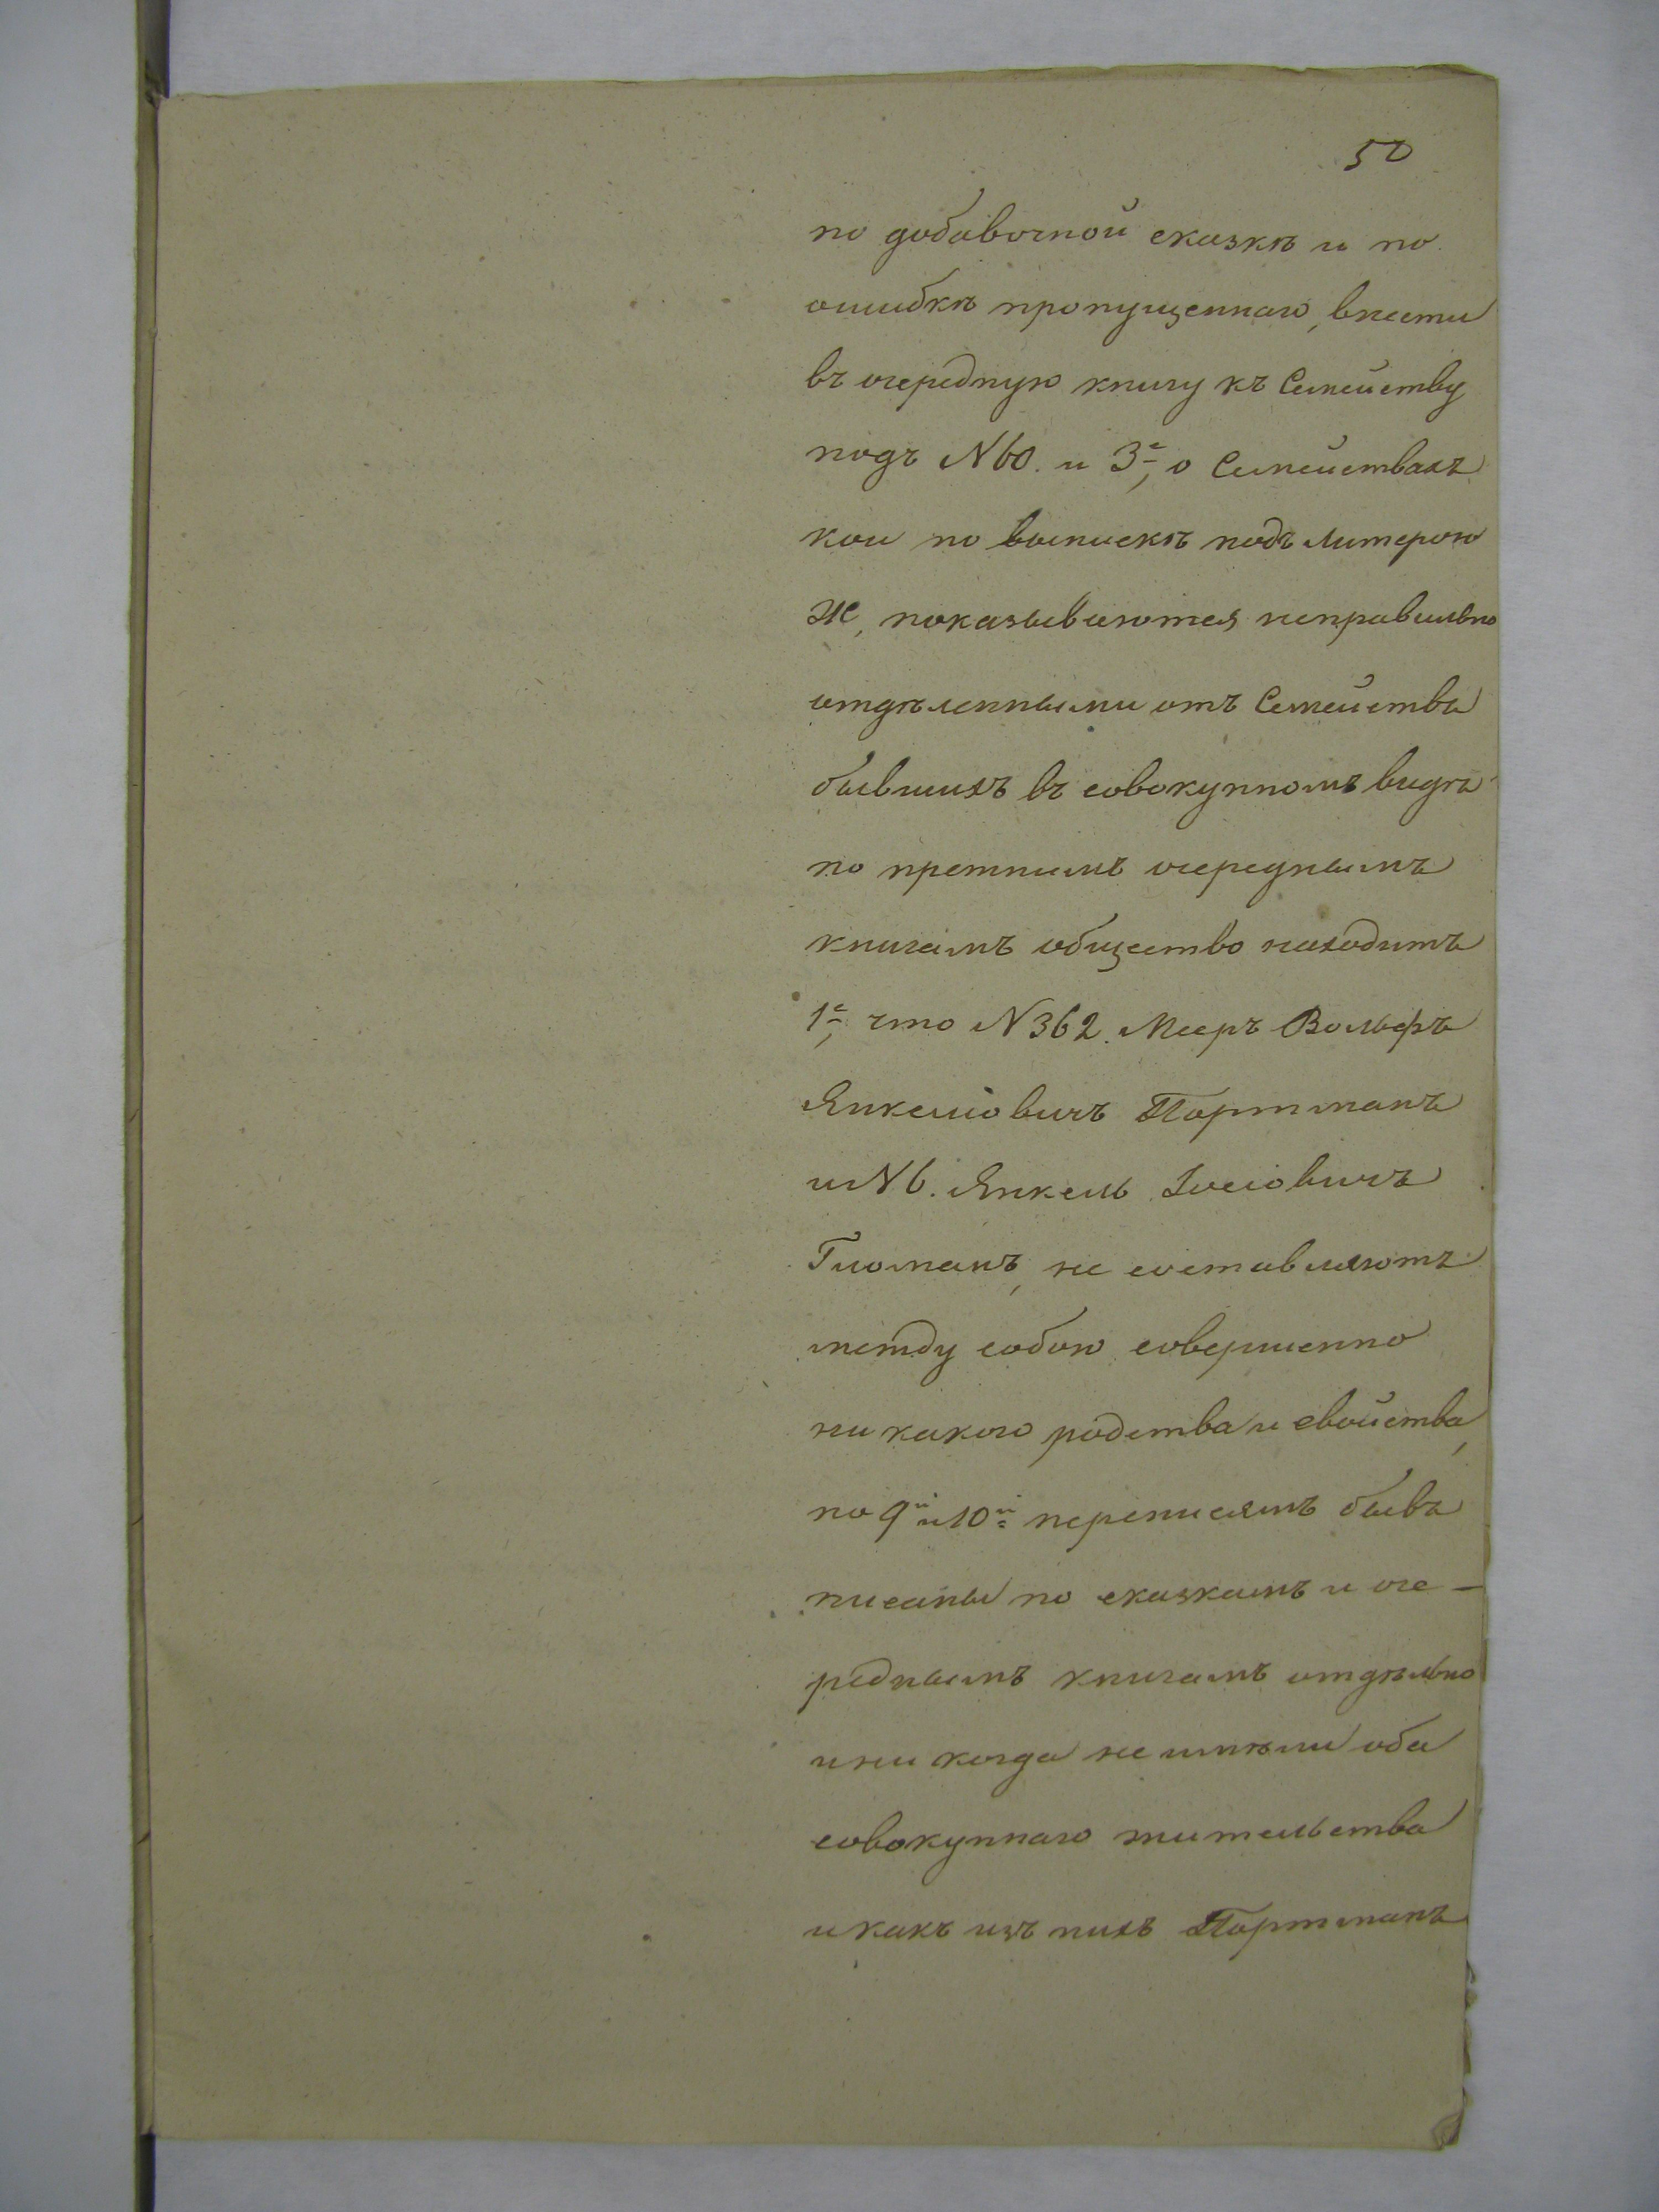 50
по добавочной сказкѣ и по
ошибкѣ пропущеннаго, внести
въ очередную книгу къ Семейству
подъ N 60. и 3е, о Семействахъ
кои по выпискѣ подъ Литерою
Ж, показываются неправильно
отдѣленными отъ Семейства
бывшихъ въ совокупномъ видѣ
по прежнимъ очереднымъ
книгамъ общество находитъ
1е, что N 362. Мееръ Вольфъ
Янкеліовичъ Портманъ
и N 6. Янкель Іосіовичъ
не составляютъ
между собою совершенно
ни какого родства и свойства,
по 9й и 10й переписямъ бывъ
писаны по сказкамъ и оче-
реднымъ книгамъ отдѣльно
и ни когда не имѣли оба
совокупнаго жительства
и какъ изъ нихъ Портманъ